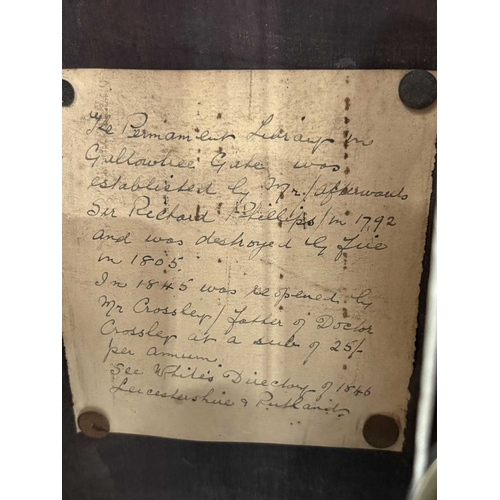 The Permament Library in
Gallowtree Gate was
established by Mr/afterwards
Sir Richard Phillips/in 1792
and was destroyed by fire
in 1805.
In 1845 was reopened by
Mr Crossley/father of Doctor
Crossley at a sub of 25/-
per annum.
See White's Directory of 1846
Leicestershire & Rutland.